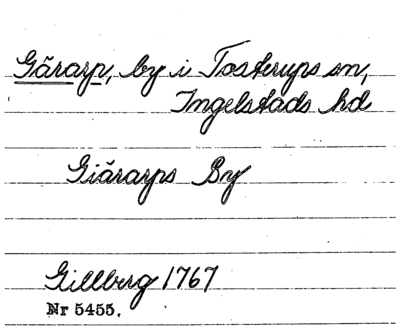 Gärarp, by i Tosterups sn,
Ingelstads hd
Giärarps By
Gillberg 1767
Nr 5455.